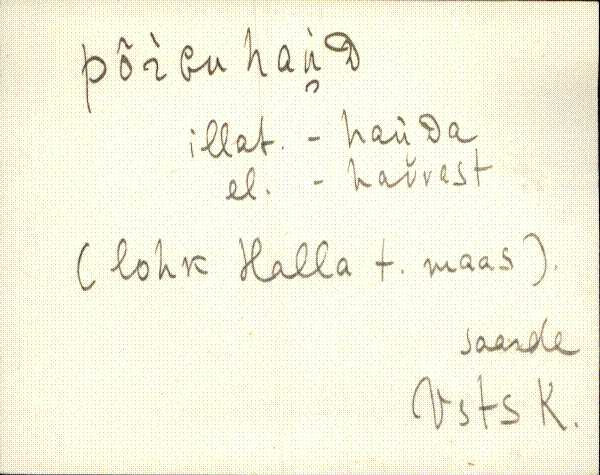 põi̇̀ɢu haù̯ᴅ
illat. - haù̀ᴅa
el. - hau̇̆vast
(lohk Halla t. maas).
Saarde
Vsts K.